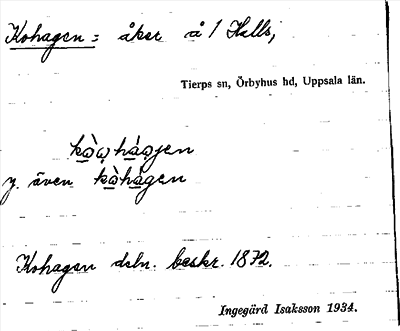 Kohagen = åker å 1 Halls,
Tierps sn, Örbyhus hd, Uppsala län.
kò̱ω̨ há̱ω̨gen
y. även kò̱há̱gen
Kohagen dsbn. beskr. 1872.
Ingegärd Isaksson 1934.